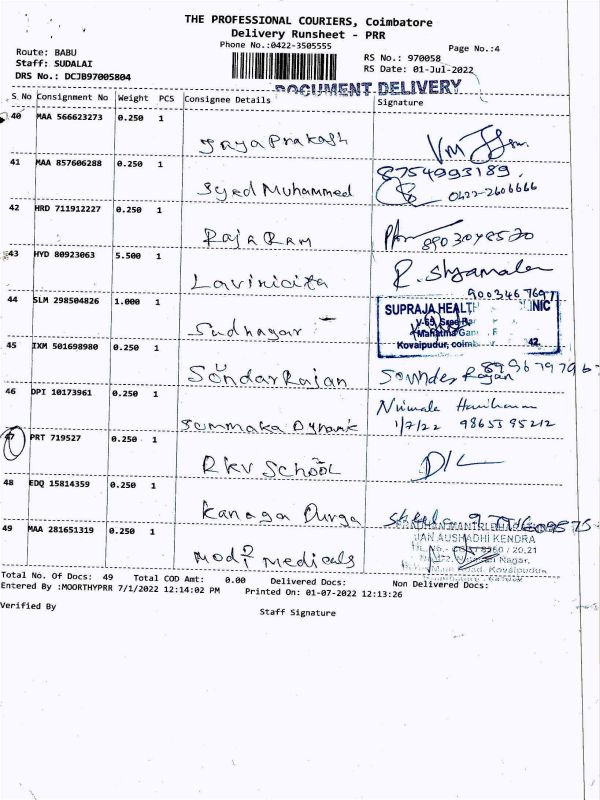 THE PROFESSIONAL COURIERS, Coimbatore
Delivery Runsheet - PRR
Phone No.:0422-3505555
Page No.:4
Route: BABU
Staff: SUDALAI
DRS No.: DCJB97005804
RS No.: 970058
RS Date: 01-Jul-2022
DOCUMENT DELIVERY
S No Consignment No Weight PCS Consignee Details Signature
40 MAA 566623273 0.250 1
JayaPrakash
41 MAA 857606288 0.250 1 8754993189
Syed Muhammed 0422-2606666
42 HRD 711912227 0.250 1
Raja Ram 8903048520
43 HYD 80923063 5.500 1
Lavinicita R. Shyamala
9003467697
44 SLM 298504826 1.000 1 SUPRAJA HEALTH CLINIC
Sudhagar
Kovaipudur, 42.
45 IXM 501698980 0.250 1
SondarRajan Sounder Rajan
46 DPI 10173961 0.250 1 Nirmala Hariharan
Summaka Dynamic 1/7/22 9865395212
47 PRT 719527 0.250 1
RKV School D/C
48 EDQ 15814359 0.250 1
Kanaga Durga
49 MAA 281651319 0.250 1 JAN AUSHADHI KENDRA
Modi Medicals
Total No. Of Docs: 49 Total COD Amt: 0.00 Delivered Docs: Non Delivered Docs:
Entered By :MOORTHYPRR 7/1/2022 12:14:02 PM Printed On: 01-07-2022 12:13:26
Verified By
Staff Signature